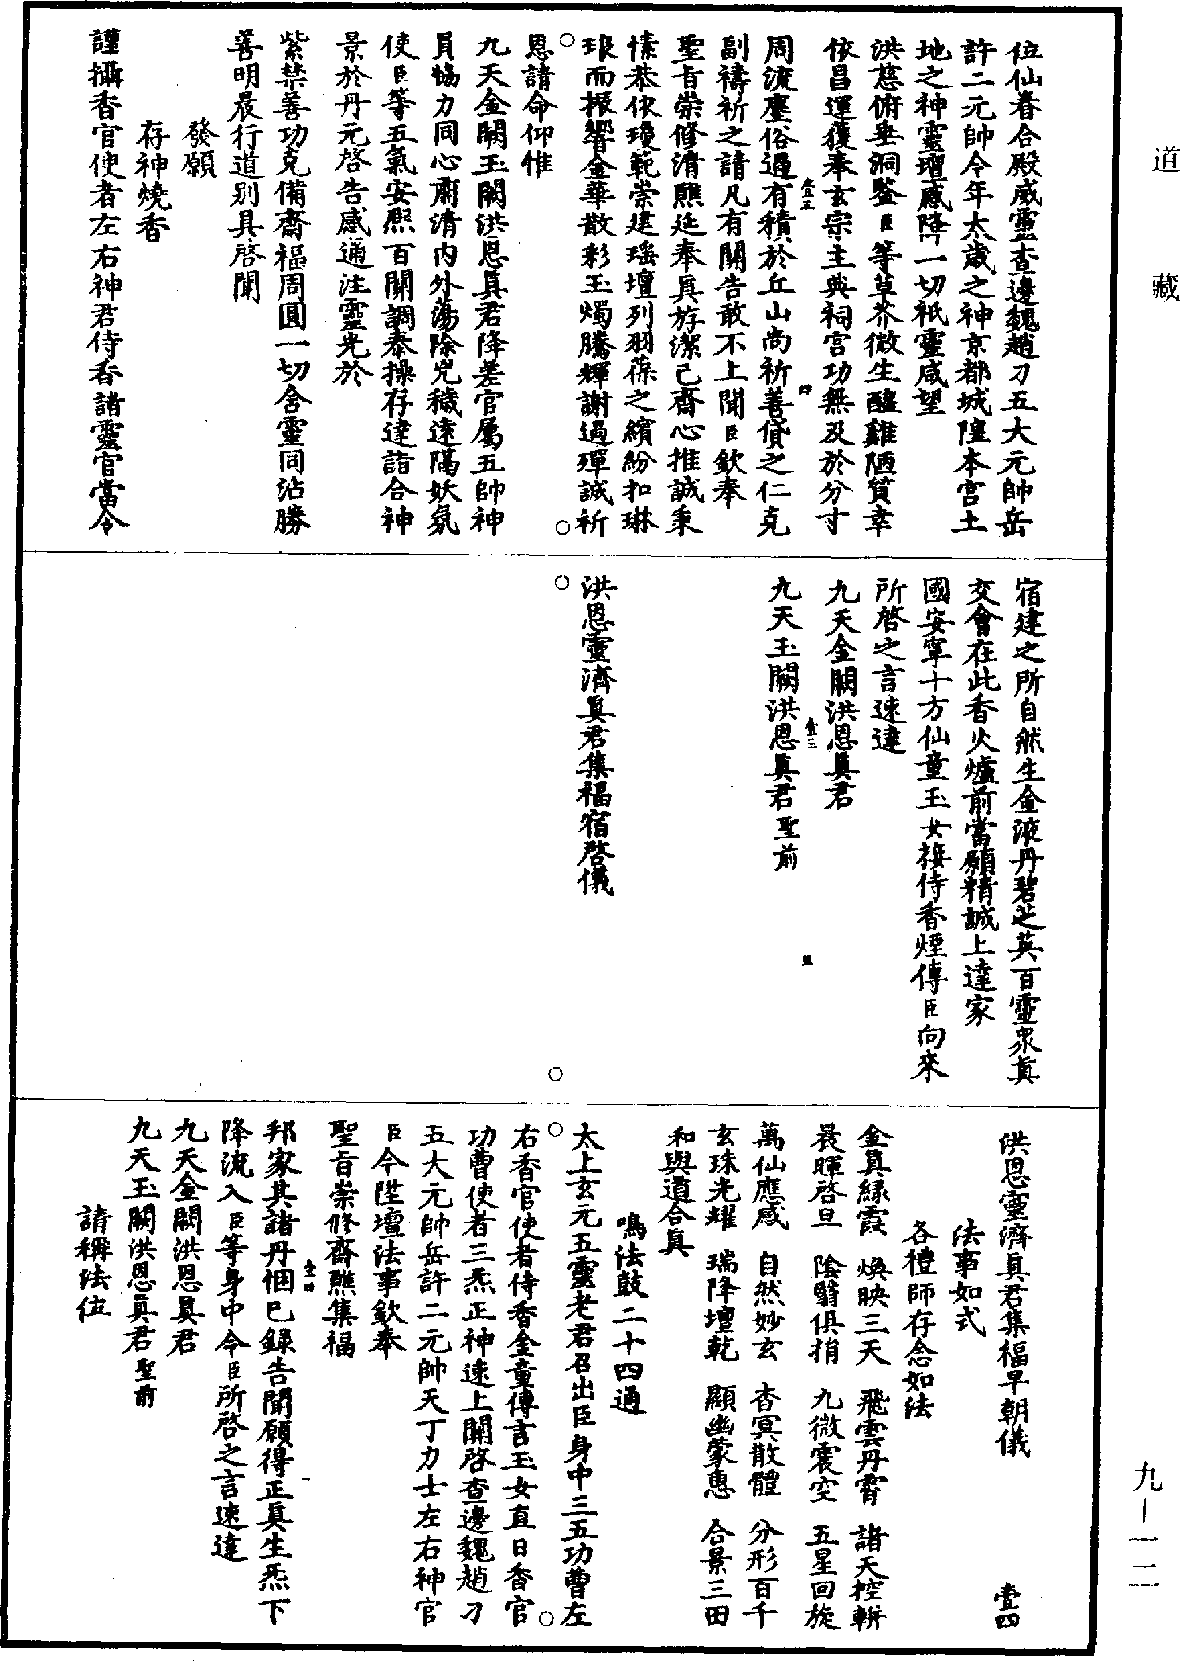 道藏
位仙眷合殿威靈查邊魏趙刀五大元帥岳
許二元帥今年太歲之神京都城隍本宮土
地之神靈壇感降一切祇靈咸望
洪慈俯垂洞鑒臣等草芥微生醯雞陋質幸
依昌運獲奉玄宗主典祠宮功無及於分寸
周流塵俗過有積於丘山尚祈善貸之仁克
副禱祈之請凡有關告敢不上聞臣欽奉
聖旨崇修清醮延奉真斿潔己齋心推誠秉
愫恭依瓊範崇建瑤壇列羽葆之繽紛扣琳
琅而振響金華散彩玉燭騰輝謝過殫誠祈
恩請命仰惟
九天金闕玉闕洪恩真君降差官屬五帥神
員協力同心肅清內外蕩除兇穢遠隔妖氛
使臣等五氣安熙百關調泰操存達詣合神
景於丹元啓告感通注靈光於
紫禁善功克備齋福周圓一切含靈同沾勝
善明晨行道別具啓聞
發願
存神燒香
謹攝香官使者左右神君侍香諸靈官當令
宿建之所自然生金液丹碧芝英百靈衆真
交會在此香火爐前當願精誠上達家
國安寧十方仙童玉女接侍香煙傳臣向來
所啓之言速達
九天金闕洪恩真君
九天玉闕洪恩真君聖前
壹三
洪恩靈濟真君集福宿啓儀
洪恩靈濟真君集福早朝儀 壹四
法事如式
各禮師存念如法
金真緣霞 煥映三天 飛雲丹霄 諸天控輧
晨暉啓旦 陰翳俱捎 九微震空 五星回旋
萬仙應感 自然妙玄 杳冥散體 分形百千
玄珠光耀 瑞降壇乾 顯幽蒙惠 合景三田
和與道合真
鳴法鼓二十四通
太上玄元五靈老君召出臣身中三五功曹左
右香官使者侍香金童傳言玉女直日香官
功曹使者三炁正神速上關啓查邊魏趙刀
五大元帥岳許二元帥天丁力士左右神官
臣今陞壇法事欽奉
聖旨崇修齋醮集福
壹四
邦家其諸丹悃已錄告聞願得正真生炁下
降流入臣等身中令臣所啓之言速達
九天金闕洪恩真君
九天玉闕洪恩真君聖前
請稱法位
九—一二